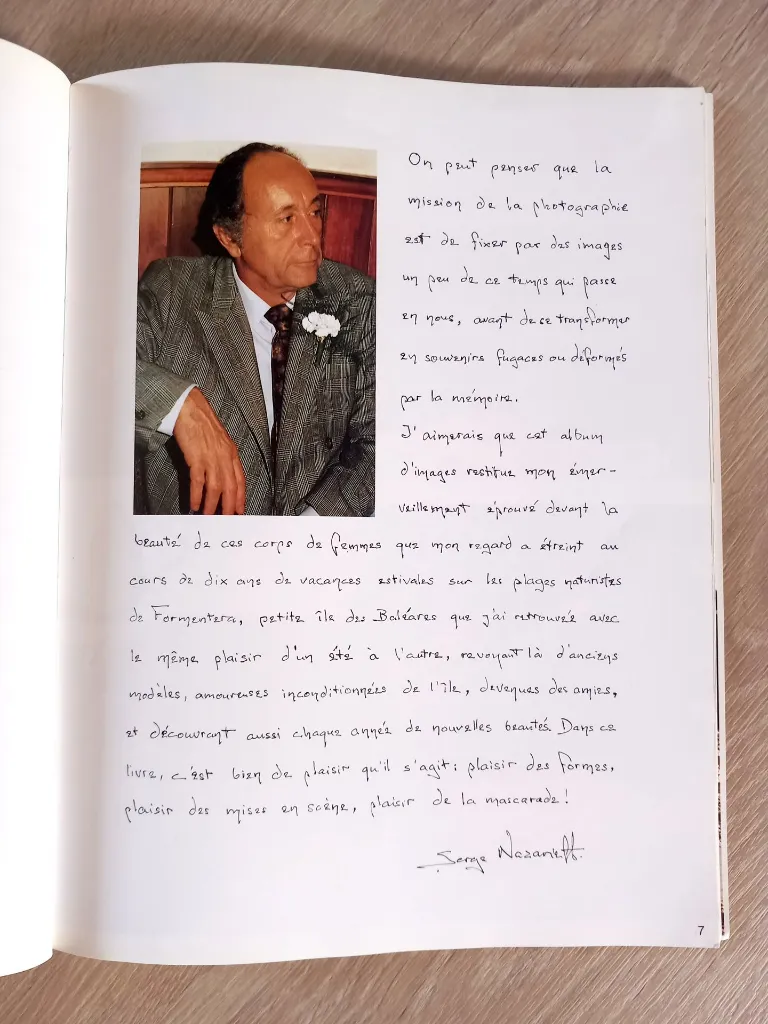 On peut penser que la
mission de la photographie
est de fixer par des images
un peu de ce temps qui passe
en nous, avant de se transformer
en souvenirs fugaces ou déformés
par la mémoire.
J'aimerais que cet album
d'images restitue mon émer-
veillement éprouvé devant la
beauté de ces corps de femmes que mon regard a étreint au
cours de dix ans de vacances estivales sur les plages naturistes
de Formentera, petite île des Baléares que j'ai retrouvée avec
le même plaisir d'un été à l'autre, revoyant là d'anciens
modèles, amoureuses inconditionnées de l'île, devenues des amies,
et découvrant aussi chaque année de nouvelles beautés. Dans ce
livre, c'est bien de plaisir qu'il s'agit : plaisir des formes,
plaisir des mises en scène, plaisir de la mascarade !
Serge Nazarieff.
7